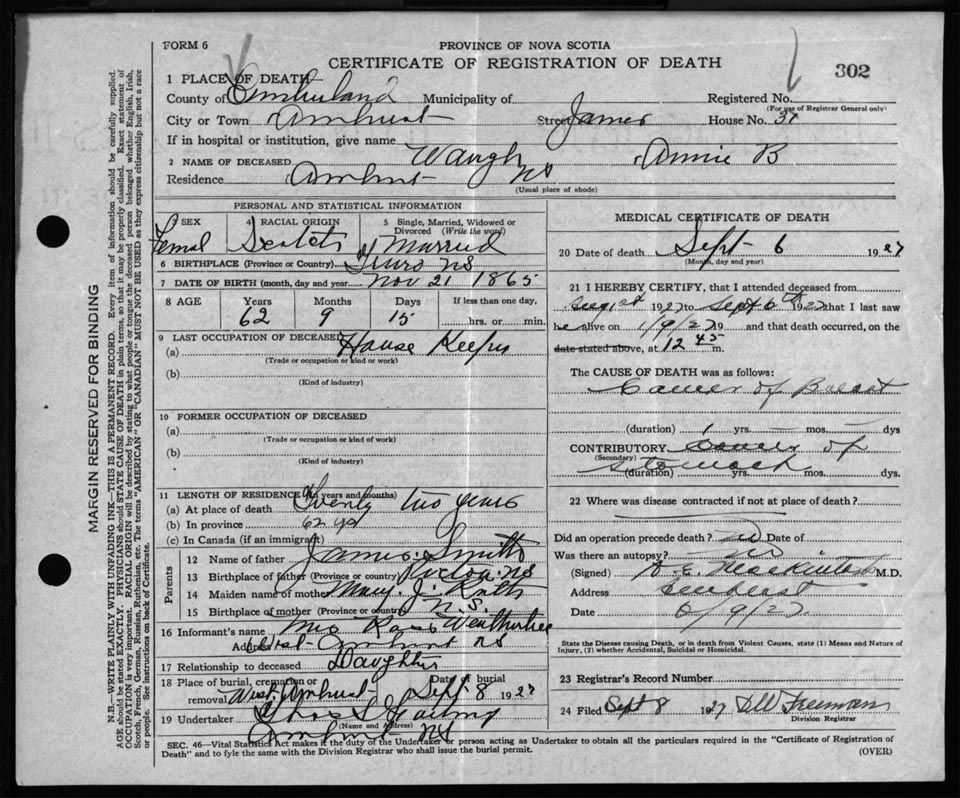 FORM 6
PROVINCE OF NOVA SCOTIA
CERTIFICATE OF REGISTRATION OF DEATH
302
1 PLACE OF DEATH
County of Cumberland Municipality of Registered No.
(For use of Registrar General only)
City or Town Amherst Street James House No. 31
If in hospital or institution, give name
2 NAME OF DECEASED Waugh, Annie B
Residence Amherst NS
(Usual place of abode)
PERSONAL AND STATISTICAL INFORMATION
3 SEX
4 RACIAL ORIGIN
5 Single, Married, Widowed or Divorced (Write the word)
Femal Scotch Married
6 BIRTHPLACE (Province or Country) Truro NS
7 DATE OF BIRTH (month, day and year) Nov 21 1865
8 AGE Years Months Days If less than one day,
62 9 15 hrs. or min.
9 LAST OCCUPATION OF DECEASED
(a) House Keeper
(Trade or occupation or kind or work)
(b)
(Kind of industry)
10 FORMER OCCUPATION OF DECEASED
(a)
(Trade or occupation or kind of work)
(b)
(Kind of industry)
11 LENGTH OF RESIDENCE (in years and months)
(a) At place of death Twenty two years
(b) In province 62 yrs
(c) In Canada (if an immigrant)
Parents
12 Name of father James Smith
13 Birthplace of father (Province or country) Pictou NS
14 Maiden name of mother Mary J.
15 Birthplace of mother (Province or country) N.S.
16 Informant's name Mrs Weatherbee
Address Amherst NS
17 Relationship to deceased Daughter
18 Place of burial, cremation or removal West Amherst Date of burial Sept 8 1927
19 Undertaker Chas S
(Name and Address)
Amherst NS
MEDICAL CERTIFICATE OF DEATH
20 Date of death Sept 6 1927
(Month, day and year)
21 I HEREBY CERTIFY, that I attended deceased from
1927 to Sept 6th 1927 that I last saw
he alive on 1/9/27 19 and that death occurred, on the
date stated above, at 12 45 m.
The CAUSE OF DEATH was as follows:
Cancer of Breast
(duration) 1 yrs. mos. dys
CONTRIBUTORY Cancer of
(Secondary)
Stomach
(duration) yrs. mos. dys.
22 Where was disease contracted if not at place of death?
Did an operation precede death? No Date of
Was there an autopsy? No
(Signed) M.D.
Address Amherst
Date 6/9/27
State the Disease causing Death, or in death from Violent Causes, state (1) Means and Nature of
Injury, (2) whether Accidental, Suicidal or Homicidal.
23 Registrar's Record Number
24 Filed Sept 8 1927 Freeman
Division Registrar
SEC. 46—Vital Statistics Act makes it the duty of the Undertaker or person acting as Undertaker to obtain all the particulars required in the "Certificate of Registration of
Death" and to fyle the same with the Division Registrar who shall issue the burial permit. (OVER)
MARGIN RESERVED FOR BINDING
N.B.—WRITE PLAINLY WITH UNFADING INK—THIS IS A PERMANENT RECORD. Every item of information should be carefully supplied.
AGE should be stated EXACTLY. PHYSICIANS should STATE CAUSE OF DEATH in plain terms, so that it may be properly classified. Exact statement of
OCCUPATION is very important. RACIAL ORIGIN will be described by stating to what people or tongue the deceased person belonged whether English, Irish,
Scotch, French, German, Russian, Ruthenian, etc. The terms "AMERICAN" OR "CANADIAN" MUST NOT BE USED as they express citizenship but not a race
or people. See instructions on back of Certificate.